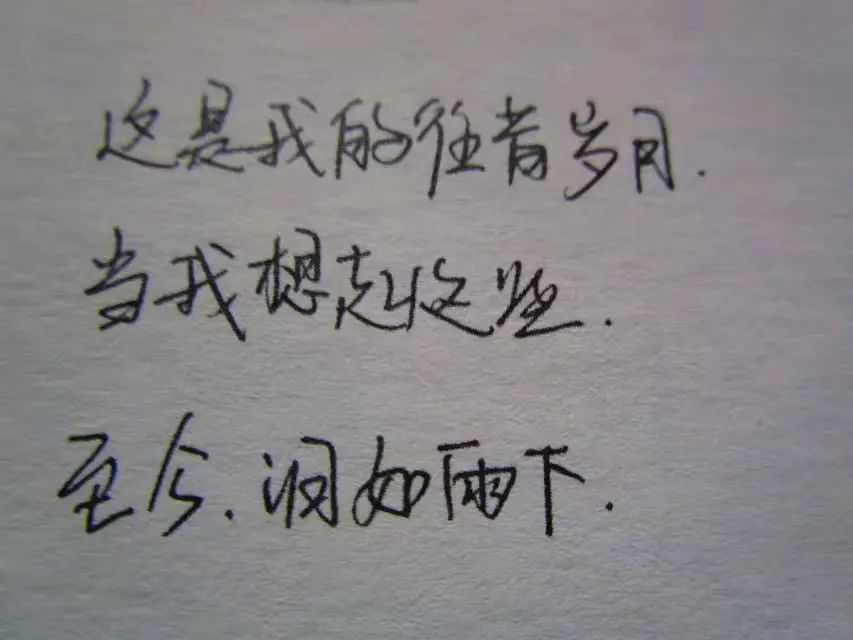 这是我的往昔岁月.
当我想起这些.
至今.泪如雨下.